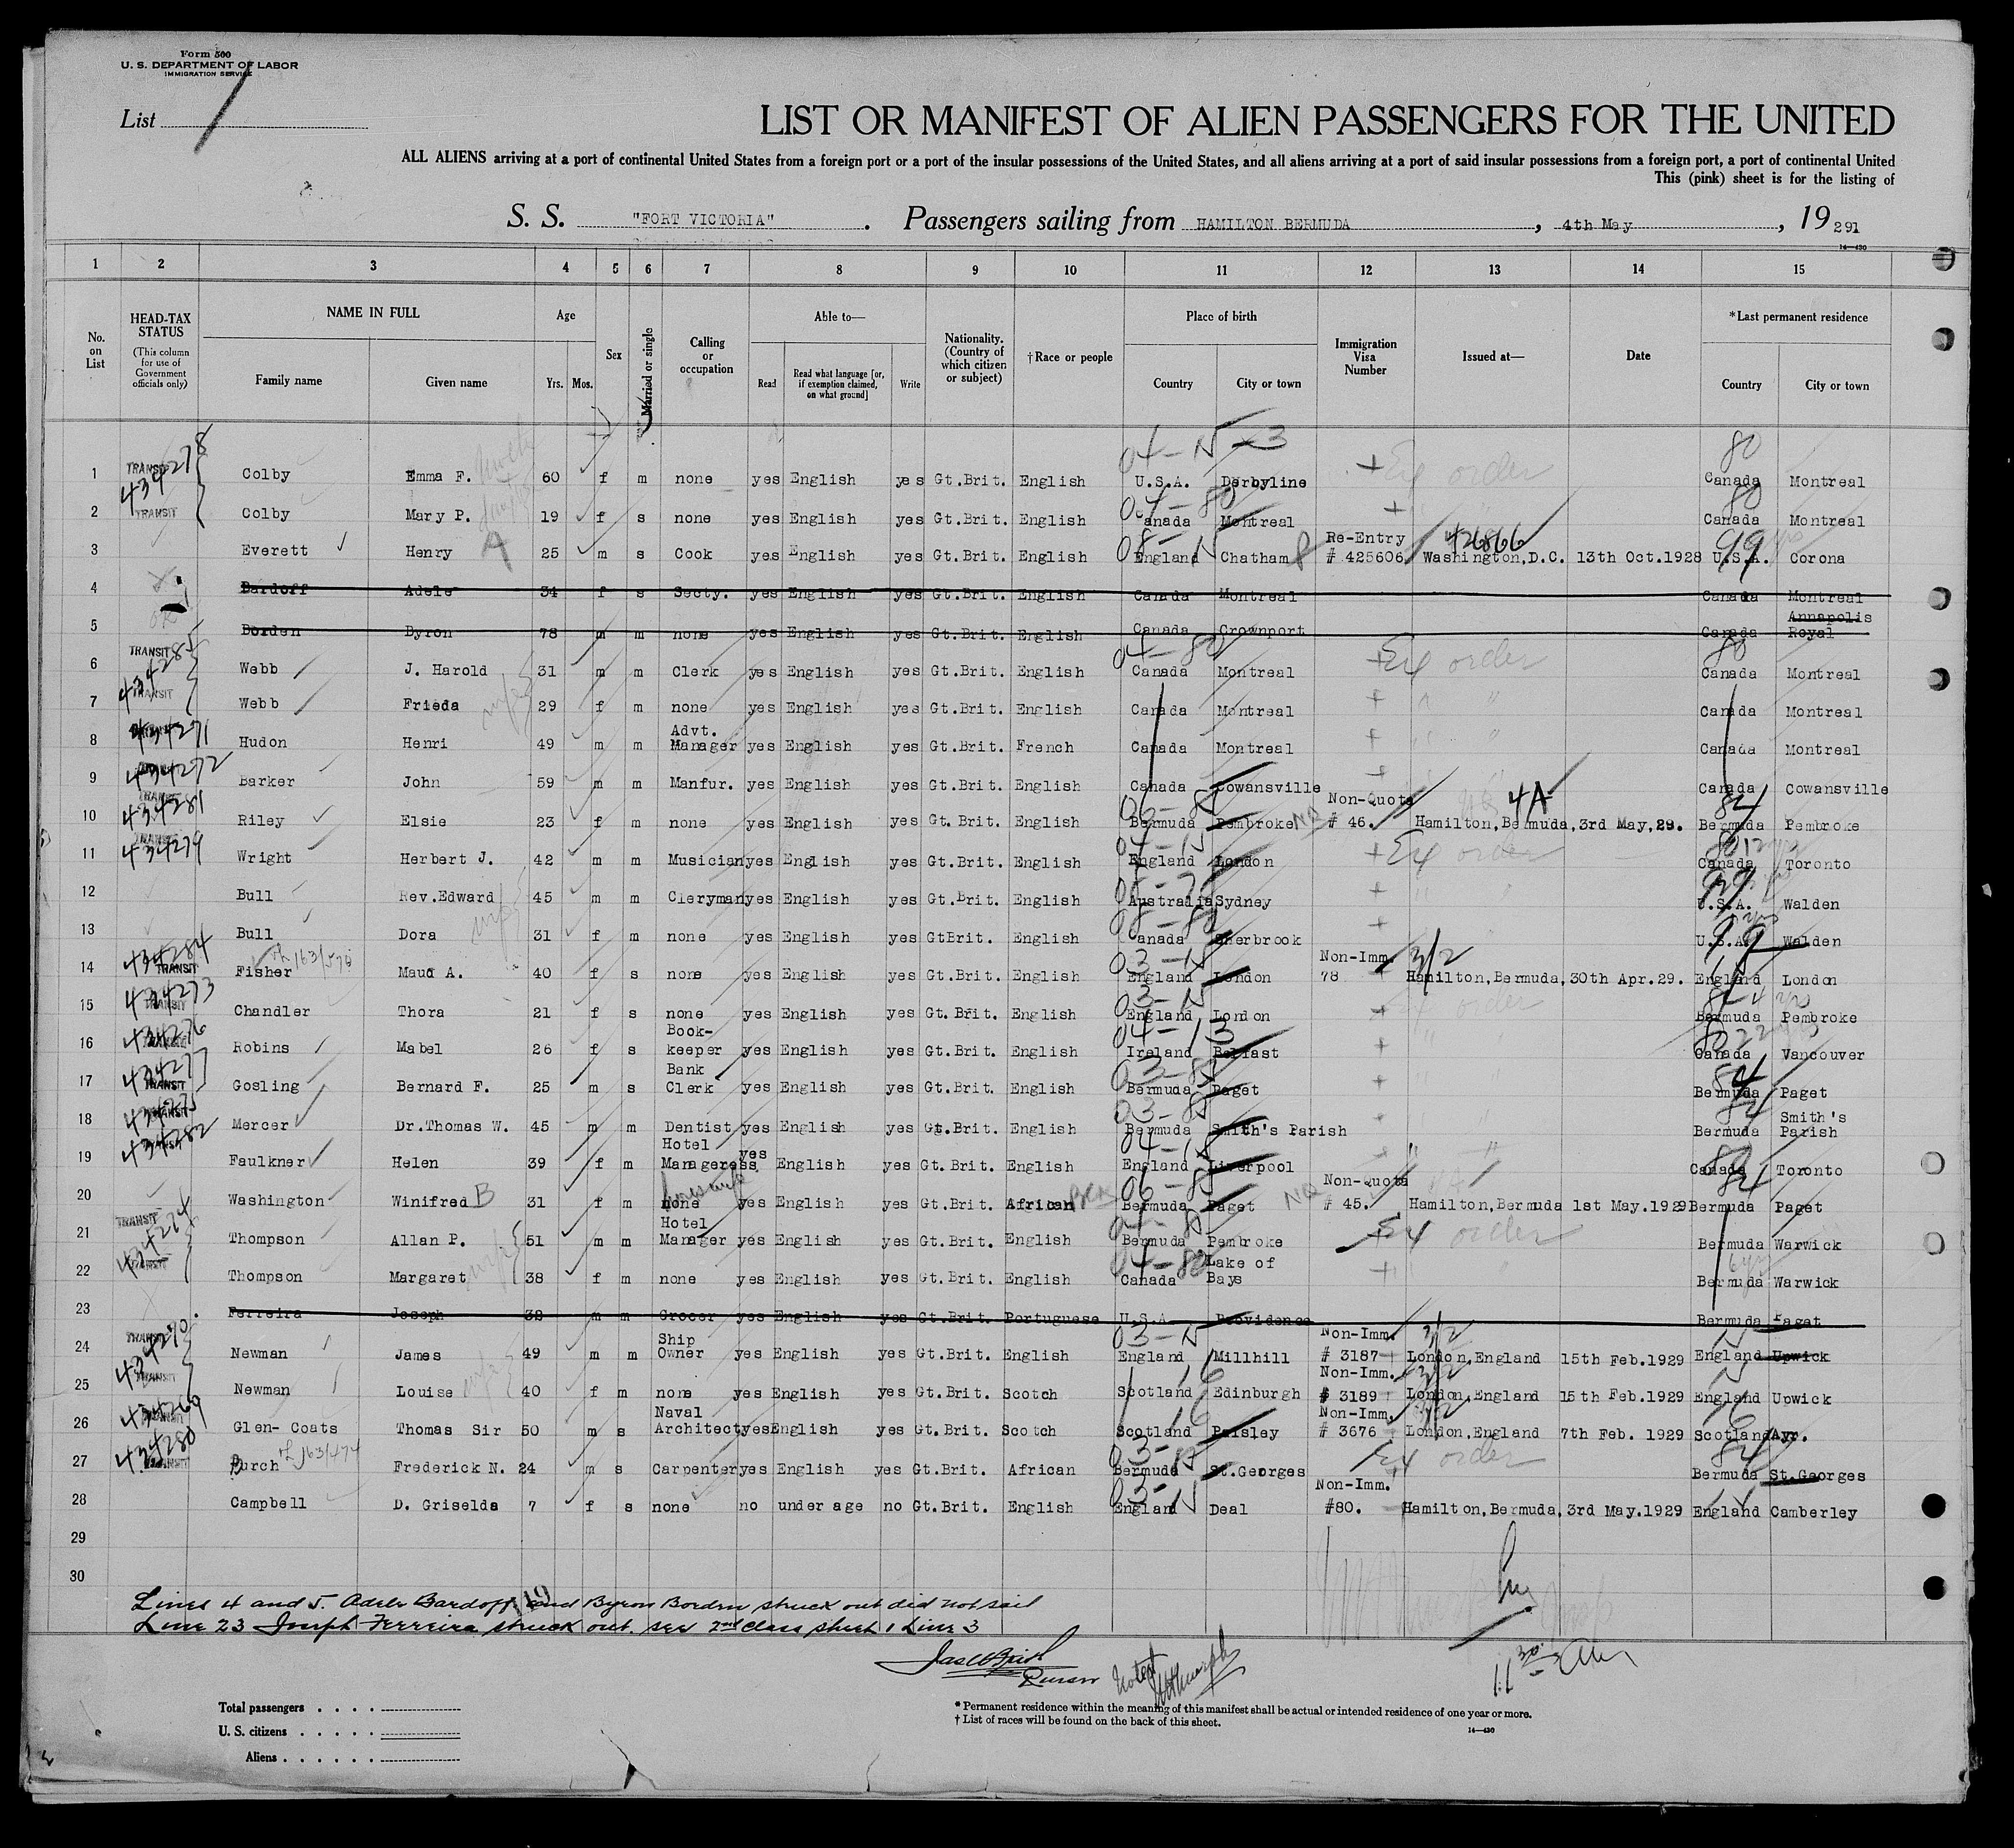 Form 500
U. S. DEPARTMENT OF LABOR
IMMIGRATION SERVICE
List 1
LIST OR MANIFEST OF ALIEN PASSENGERS FOR THE UNITED
ALL ALIENS arriving at a port of continental United States from a foreign port or a port of the insular possessions of the United States, and all aliens arriving at a port of said insular possessions from a foreign port, a port of continental United
This (pink) sheet is for the listing of
S. S. "FORT VICTORIA". Passengers sailing from HAMILTON BERMUDA, 4th May, 19291
14—430
1 2 3 4 5 6 7 8 9 10 11 12 13 14 15
No. on List
HEAD-TAX STATUS (This column for use of Government officials only)
NAME IN FULL
Family name Given name
Age Yrs. Mos.
Sex
Married or single
Calling or occupation
Able to—
Read Read what language [or, if exemption claimed, on what ground] Write
Nationality. (Country of which citizen or subject)
†Race or people
Place of birth
Country City or town
Immigration Visa Number
Issued at—
Date
*Last permanent residence
Country City or town
04-N-3 80
1 TRANSIT 434278 Colby Emma F. 60 f m none yes English yes Gt.Brit. English U.S.A. Derbyline + Ex order Canada Montreal
04-80 80
2 TRANSIT Colby Mary P. 19 f s none yes English yes Gt.Brit. English Canada Montreal + Canada Montreal
3 Everett Henry A 25 m s Cook yes English yes Gt.Brit. English England Chatham Re-Entry # 425606 426866 Washington,D.C. 13th Oct.1928 U.S.A. 99 Corona
4 Bardoff Adele 34 f s Secty. yes English yes Gt.Brit. English Canada Montreal Canada Montreal
5 Borden Byron 78 m m none yes English yes Gt.Brit. English Canada Crownport Canada Annapolis Royal
04-80 80
6 TRANSIT 434285 Webb J. Harold 31 m m Clerk yes English yes Gt.Brit. English Canada Montreal + Ex order Canada Montreal
7 TRANSIT Webb Frieda 29 f m none yes English yes Gt.Brit. English Canada Montreal + " " Canada Montreal
8 434271 Hudon Henri 49 m m Advt. Manager yes English yes Gt.Brit. French Canada Montreal + " " Canada Montreal
9 434272 Barker John 59 m m Manfur. yes English yes Gt.Brit. English Canada Cowansville + Canada Cowansville
10 TRANSIT 434281 Riley Elsie 23 f m none yes English yes Gt. Brit. English Bermuda Pembroke NQ Non-Quota # 46. 4A Hamilton,Bermuda,3rd May,29. Bermuda 84 Pembroke
11 TRANSIT 434279 Wright Herbert J. 42 m m Musician yes English yes Gt.Brit. English England London + Ex order Canada Toronto
12 Bull Rev.Edward 45 m m Cleryman yes English yes Gt.Brit. English Australia Sydney + U.S.A. 99 Walden
13 Bull Dora 31 f m none yes English yes GtBrit. English Canada Sherbrook + U.S.A. 99 Walden
14 434284 TRANSIT Fisher Maud A. 40 f s none yes English yes Gt.Brit. English England London Non-Imm. 78 3/2 Hamilton,Bermuda,30th Apr.29. England London
15 434273 TRANSIT Chandler Thora 21 f s none yes English yes Gt. Brit. English England London + Ex order Bermuda Pembroke
16 434276 Robins Mabel 26 f s Book-keeper yes English yes Gt.Brit. English Ireland Belfast + Canada Vancouver
17 434277 TRANSIT Gosling Bernard F. 25 m s Bank Clerk yes English yes Gt.Brit. English Bermuda Paget + Bermuda 84 Paget
18 434275 TRANSIT Mercer Dr.Thomas W. 45 m m Dentist yes English yes Gt.Brit. English Bermuda Smith's Parish + Bermuda Smith's Parish
19 434282 Faulkner Helen 39 f m Hotel Manageress yes English yes Gt.Brit. English England Liverpool + " " Canada Toronto
20 Washington Winifred B 31 f m none housewife yes English yes Gt.Brit. African Bermuda Paget NQ Non-Quota # 45. Hamilton,Bermuda 1st May.1929 Bermuda 84 Paget
21 TRANSIT 434274 Thompson Allan P. 51 m m Hotel Manager yes English yes Gt.Brit. English Bermuda Pembroke + Ex order Bermuda Warwick
22 TRANSIT Thompson Margaret wife 38 f m none yes English yes Gt.Brit. English Canada Lake of Bays + Bermuda Warwick
23 Ferreira Joseph 32 m m Grocer yes English yes Gt.Brit. Portuguese U.S.A Providence Bermuda Paget
24 TRANSIT 434270 Newman James 49 m m Ship Owner yes English yes Gt.Brit. English England Millhill Non-Imm. # 3187 3/2 London,England 15th Feb.1929 England Upwick
25 TRANSIT Newman Louise wife 40 f m none yes English yes Gt.Brit. Scotch Scotland Edinburgh Non-Imm. # 3189 3/2 London,England 15th Feb.1929 England Upwick
26 434269 Glen- Coats Thomas Sir 50 m s Naval Architect yes English yes Gt.Brit. Scotch Scotland Paisley Non-Imm. # 3676 3/2 London,England 7th Feb. 1929 Scotland Ayr.
27 434280 TRANSIT Burch Frederick N. 24 m s Carpenter yes English yes Gt.Brit. African Bermuda St.Georges Ex order Bermuda 84 St.Georges
28 Campbell D. Griselda 7 f s none no under age no Gt.Brit. English England Deal Non-Imm. #80. Hamilton,Bermuda,3rd May.1929 England Camberley
29
30
Lines 4 and 5. Adele Bardoff and Byron Borden struck out did not sail
Line 23 Joseph Ferreira struck out. see 2nd class sheet 1 Line 3
Purser
Noted
Total passengers . . . .
U. S. citizens . . . . .
Aliens . . . . . .
* Permanent residence within the meaning of this manifest shall be actual or intended residence of one year or more.
† List of races will be found on the back of this sheet.
14—430